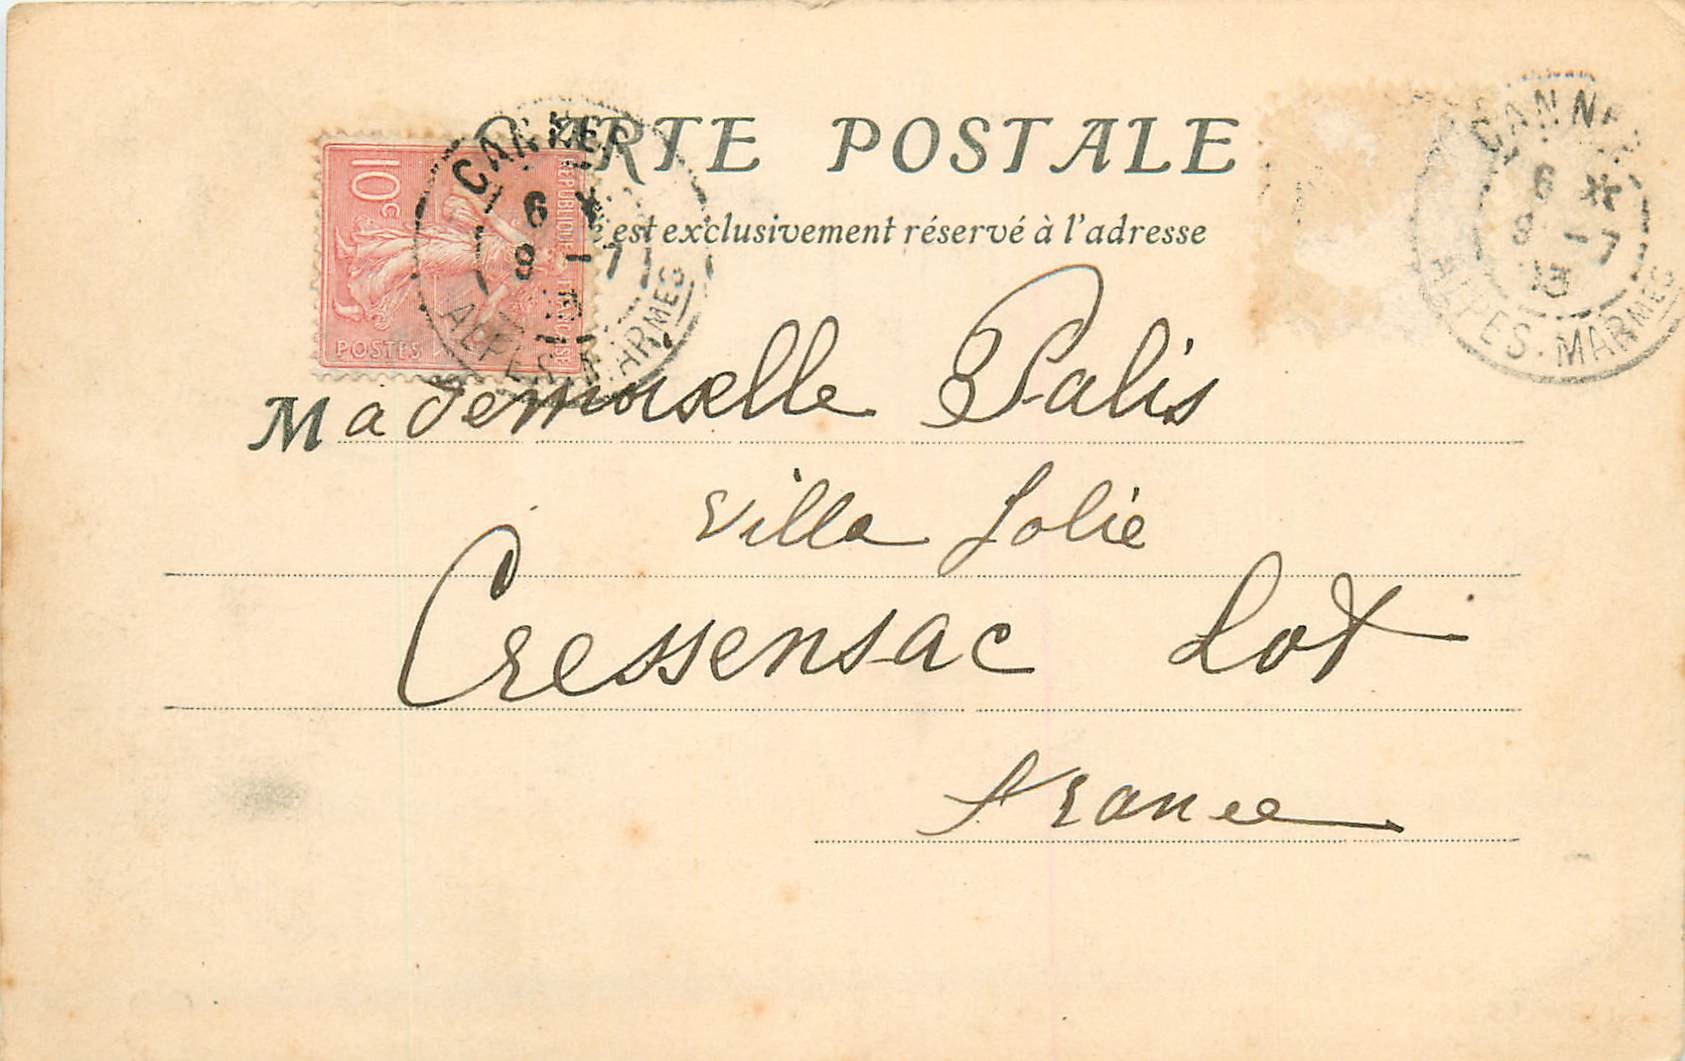 CARTE POSTALE
est exclusivement réservé à l'adresse
10c
REPUBLIQUE FRANCAISE
POSTES
CANNES
6 X
8 -7
ALPES MARMES
CANNES
6 X
8 -7
03
ALPES-MARMES
Mademoiselle Palis
Villa Jolie
Cressensac Lot
France